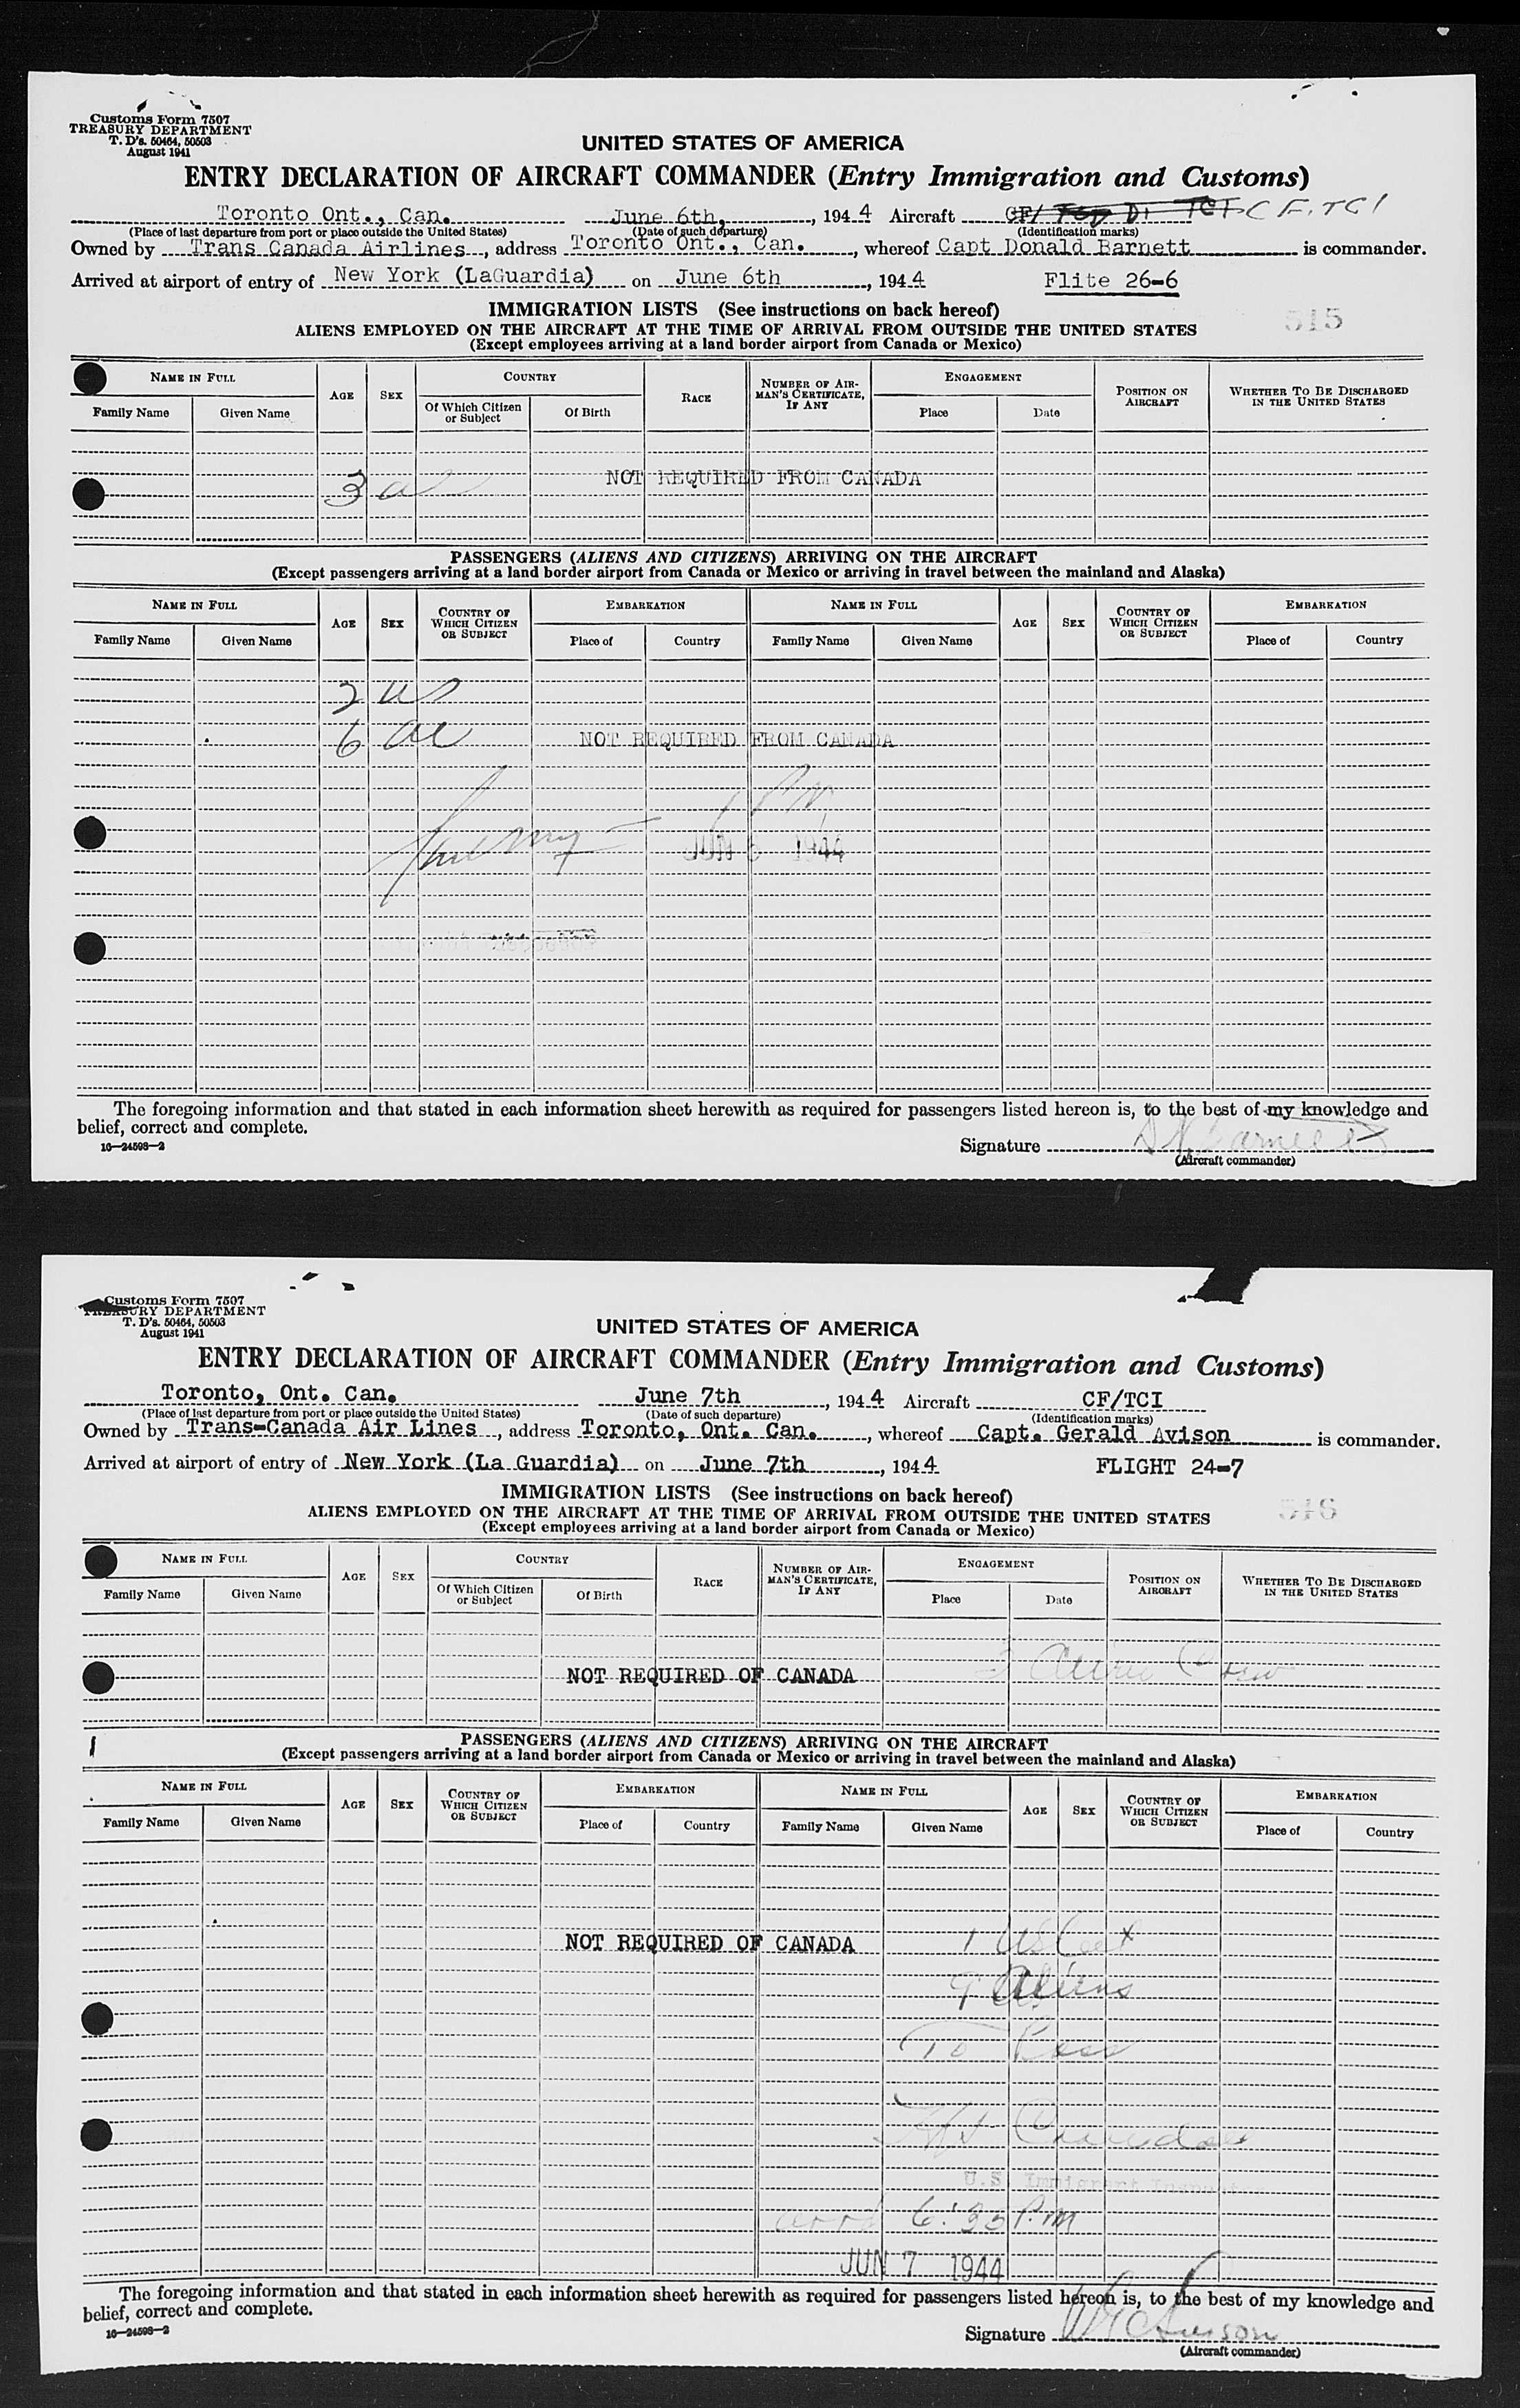 Customs Form 7507
TREASURY DEPARTMENT
T. D's. 50464, 50503
August 1941
UNITED STATES OF AMERICA
ENTRY DECLARATION OF AIRCRAFT COMMANDER (Entry Immigration and Customs)
Toronto Ont., Can. June 6th, , 1944 Aircraft CF/ CF.TCI
(Place of last departure from port or place outside the United States) (Date of such departure) (Identification marks)
Owned by Trans Canada Airlines, address Toronto Ont., Can. , whereof Capt Donald Barnett is commander.
Arrived at airport of entry of New York (LaGuardia) on June 6th , 1944 Flite 26-6
IMMIGRATION LISTS (See instructions on back hereof)
515
ALIENS EMPLOYED ON THE AIRCRAFT AT THE TIME OF ARRIVAL FROM OUTSIDE THE UNITED STATES
(Except employees arriving at a land border airport from Canada or Mexico)
NAME IN FULL AGE SEX COUNTRY RACE NUMBER OF AIRMAN'S CERTIFICATE, IF ANY ENGAGEMENT POSITION ON AIRCRAFT WHETHER TO BE DISCHARGED IN THE UNITED STATES
Family Name Given Name Of Which Citizen or Subject Of Birth Place Date
NOT REQUIRED FROM CANADA
3
PASSENGERS (ALIENS AND CITIZENS) ARRIVING ON THE AIRCRAFT
(Except passengers arriving at a land border airport from Canada or Mexico or arriving in travel between the mainland and Alaska)
NAME IN FULL AGE SEX COUNTRY OF WHICH CITIZEN OR SUBJECT EMBARKATION NAME IN FULL AGE SEX COUNTRY OF WHICH CITIZEN OR SUBJECT EMBARKATION
Family Name Given Name Place of Country Family Name Given Name Place of Country
2 us
6 al
NOT REQUIRED FROM CANADA
JUN 6 1944
The foregoing information and that stated in each information sheet herewith as required for passengers listed hereon is, to the best of my knowledge and
belief, correct and complete.
16—24598—2
Signature
(Aircraft commander)
Customs Form 7507
TREASURY DEPARTMENT
T. D's. 50464, 50503
August 1941
UNITED STATES OF AMERICA
ENTRY DECLARATION OF AIRCRAFT COMMANDER (Entry Immigration and Customs)
Toronto, Ont. Can. June 7th , 1944 Aircraft CF/TCI
(Place of last departure from port or place outside the United States) (Date of such departure) (Identification marks)
Owned by Trans-Canada Air Lines, address Toronto, Ont. Can. , whereof Capt. Gerald Avison is commander.
Arrived at airport of entry of New York (La Guardia) on June 7th , 1944 FLIGHT 24-7
IMMIGRATION LISTS (See instructions on back hereof)
516
ALIENS EMPLOYED ON THE AIRCRAFT AT THE TIME OF ARRIVAL FROM OUTSIDE THE UNITED STATES
(Except employees arriving at a land border airport from Canada or Mexico)
NAME IN FULL AGE SEX COUNTRY RACE NUMBER OF AIRMAN'S CERTIFICATE, IF ANY ENGAGEMENT POSITION ON AIRCRAFT WHETHER TO BE DISCHARGED IN THE UNITED STATES
Family Name Given Name Of Which Citizen or Subject Of Birth Place Date
3 Alien Crew
NOT REQUIRED OF CANADA
PASSENGERS (ALIENS AND CITIZENS) ARRIVING ON THE AIRCRAFT
(Except passengers arriving at a land border airport from Canada or Mexico or arriving in travel between the mainland and Alaska)
NAME IN FULL AGE SEX COUNTRY OF WHICH CITIZEN OR SUBJECT EMBARKATION NAME IN FULL AGE SEX COUNTRY OF WHICH CITIZEN OR SUBJECT EMBARKATION
Family Name Given Name Place of Country Family Name Given Name Place of Country
NOT REQUIRED OF CANADA 1 US Cit
9 Aliens
10 Pass
U.S. Immigrant Inspector
arrd 6:35 P.m
JUN 7 1944
The foregoing information and that stated in each information sheet herewith as required for passengers listed hereon is, to the best of my knowledge and
belief, correct and complete.
16—24598—2
Signature
(Aircraft commander)